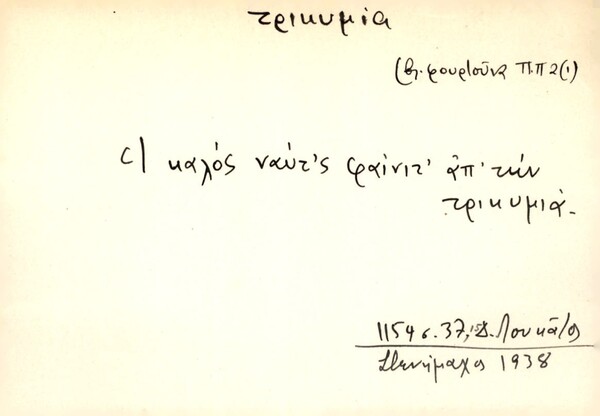 τρικυμία
(βλ. φουρτούνα Π.Π 2(1)
c) καλός ναύτ'ς φαίνιτ' ἀπ' τήν
τρικυμιά.
1154 σ. 37, Δ. Λουκᾶτος
Στενήμαχος 1938